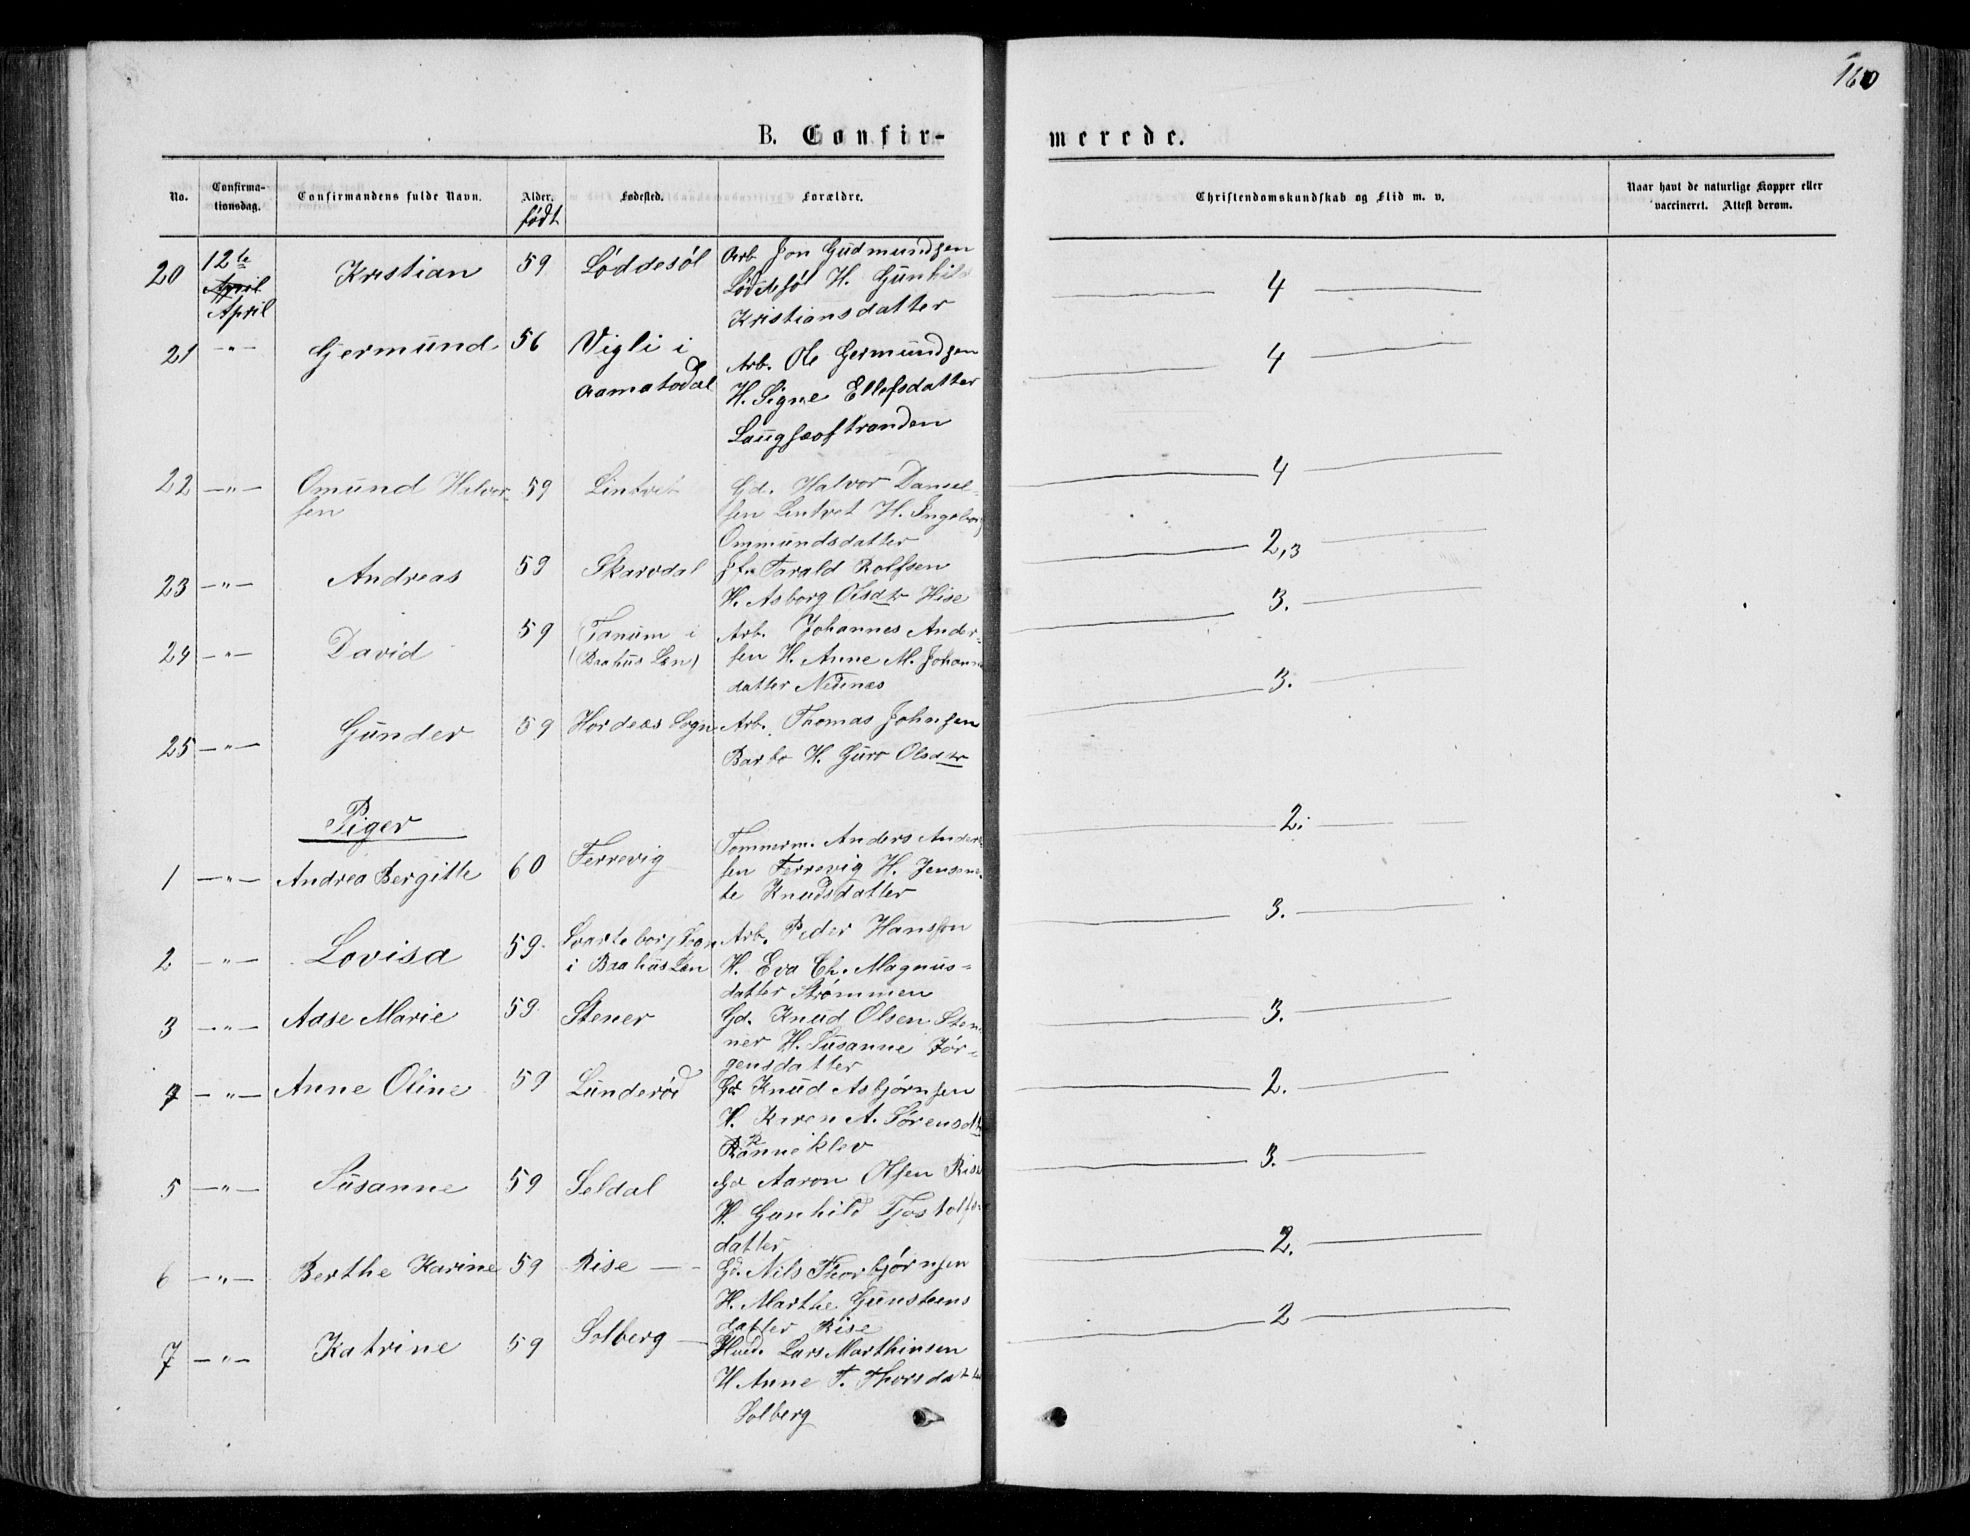 160
B. Confir-
merede.
No.
Confirma-
tionsdag.
Confirmandens fulde Navn.
Alder.
født
Fødested.
Forældre.
Christendomskundskab og Flid m. v.
Naar havt de naturlige Kopper eller
vaccineret. Attest derom.
20 12te Kristian 59 Løddesøl Arb. Jon Gudmundsen
April Løddesøl H. Gunhild
April Kristiansdatter
4
21 -"- Gjermund 56 Vigli i Arb. Ole Germundsen
Aamatsdal H. Signe Ellefsdatter
Laugsæstranden
4
22 -"- Omund Halvor- 59 Lintvet Gd. Halvor Daniel-
sen sen Lintvet H. Ingeborg
Ommundsdatter
4
23 -"- Andreas 59 Skarvdal Tarald Rolfsen
H. Asborg Olsdtr Hise
2,3
24 -"- David 59 (Tanum i Arb. Johannes Ander-
(Baahus Len) sen H. Anne M. Johann
datter Nednæs
3.
25 -"- Gunder 59 Hordnæs Sogn Arb. Thomas Johnsen
Barbo H. Guro Olsdtr
3.
Piger
1 -"- Andrea Bergitte 60 Ferrevig Tommerm. Anders Ander-
sen Ferrevig H. Jensin-
te Knudsdatter
2.
2 -"- Lovisa 59. Svarteborg Sogn Arb. Peder Hanssen
i Baahus Len H. Eva Ch. Magnus-
datter Strømmen
3.
3 -"- Aase Marie 59. Stener Gd. Knud Olsen Ste-
ner H. Susanne Jør-
gensdatter
3.
4 -"- Anne Oline 59 Lunderød Gd. Knud Asbjørnsen
H. Karen A. Sørensdtr
Rånneklev
2.
5 -"- Susanne 59 Seldal Gd. Aaron Olsen Rise
H. Gunhild Tjostolfs
datter
3.
6 -"- Berthe Karine 59 Rise Gd. Nils Thorbjørnsen
H. Marthe Gunsteens
datter Rise
2.
7 -"- Katrine 59 Solberg Huusd. Lars Morthinsen
H Anne T. Thorsdatter
Solberg
2